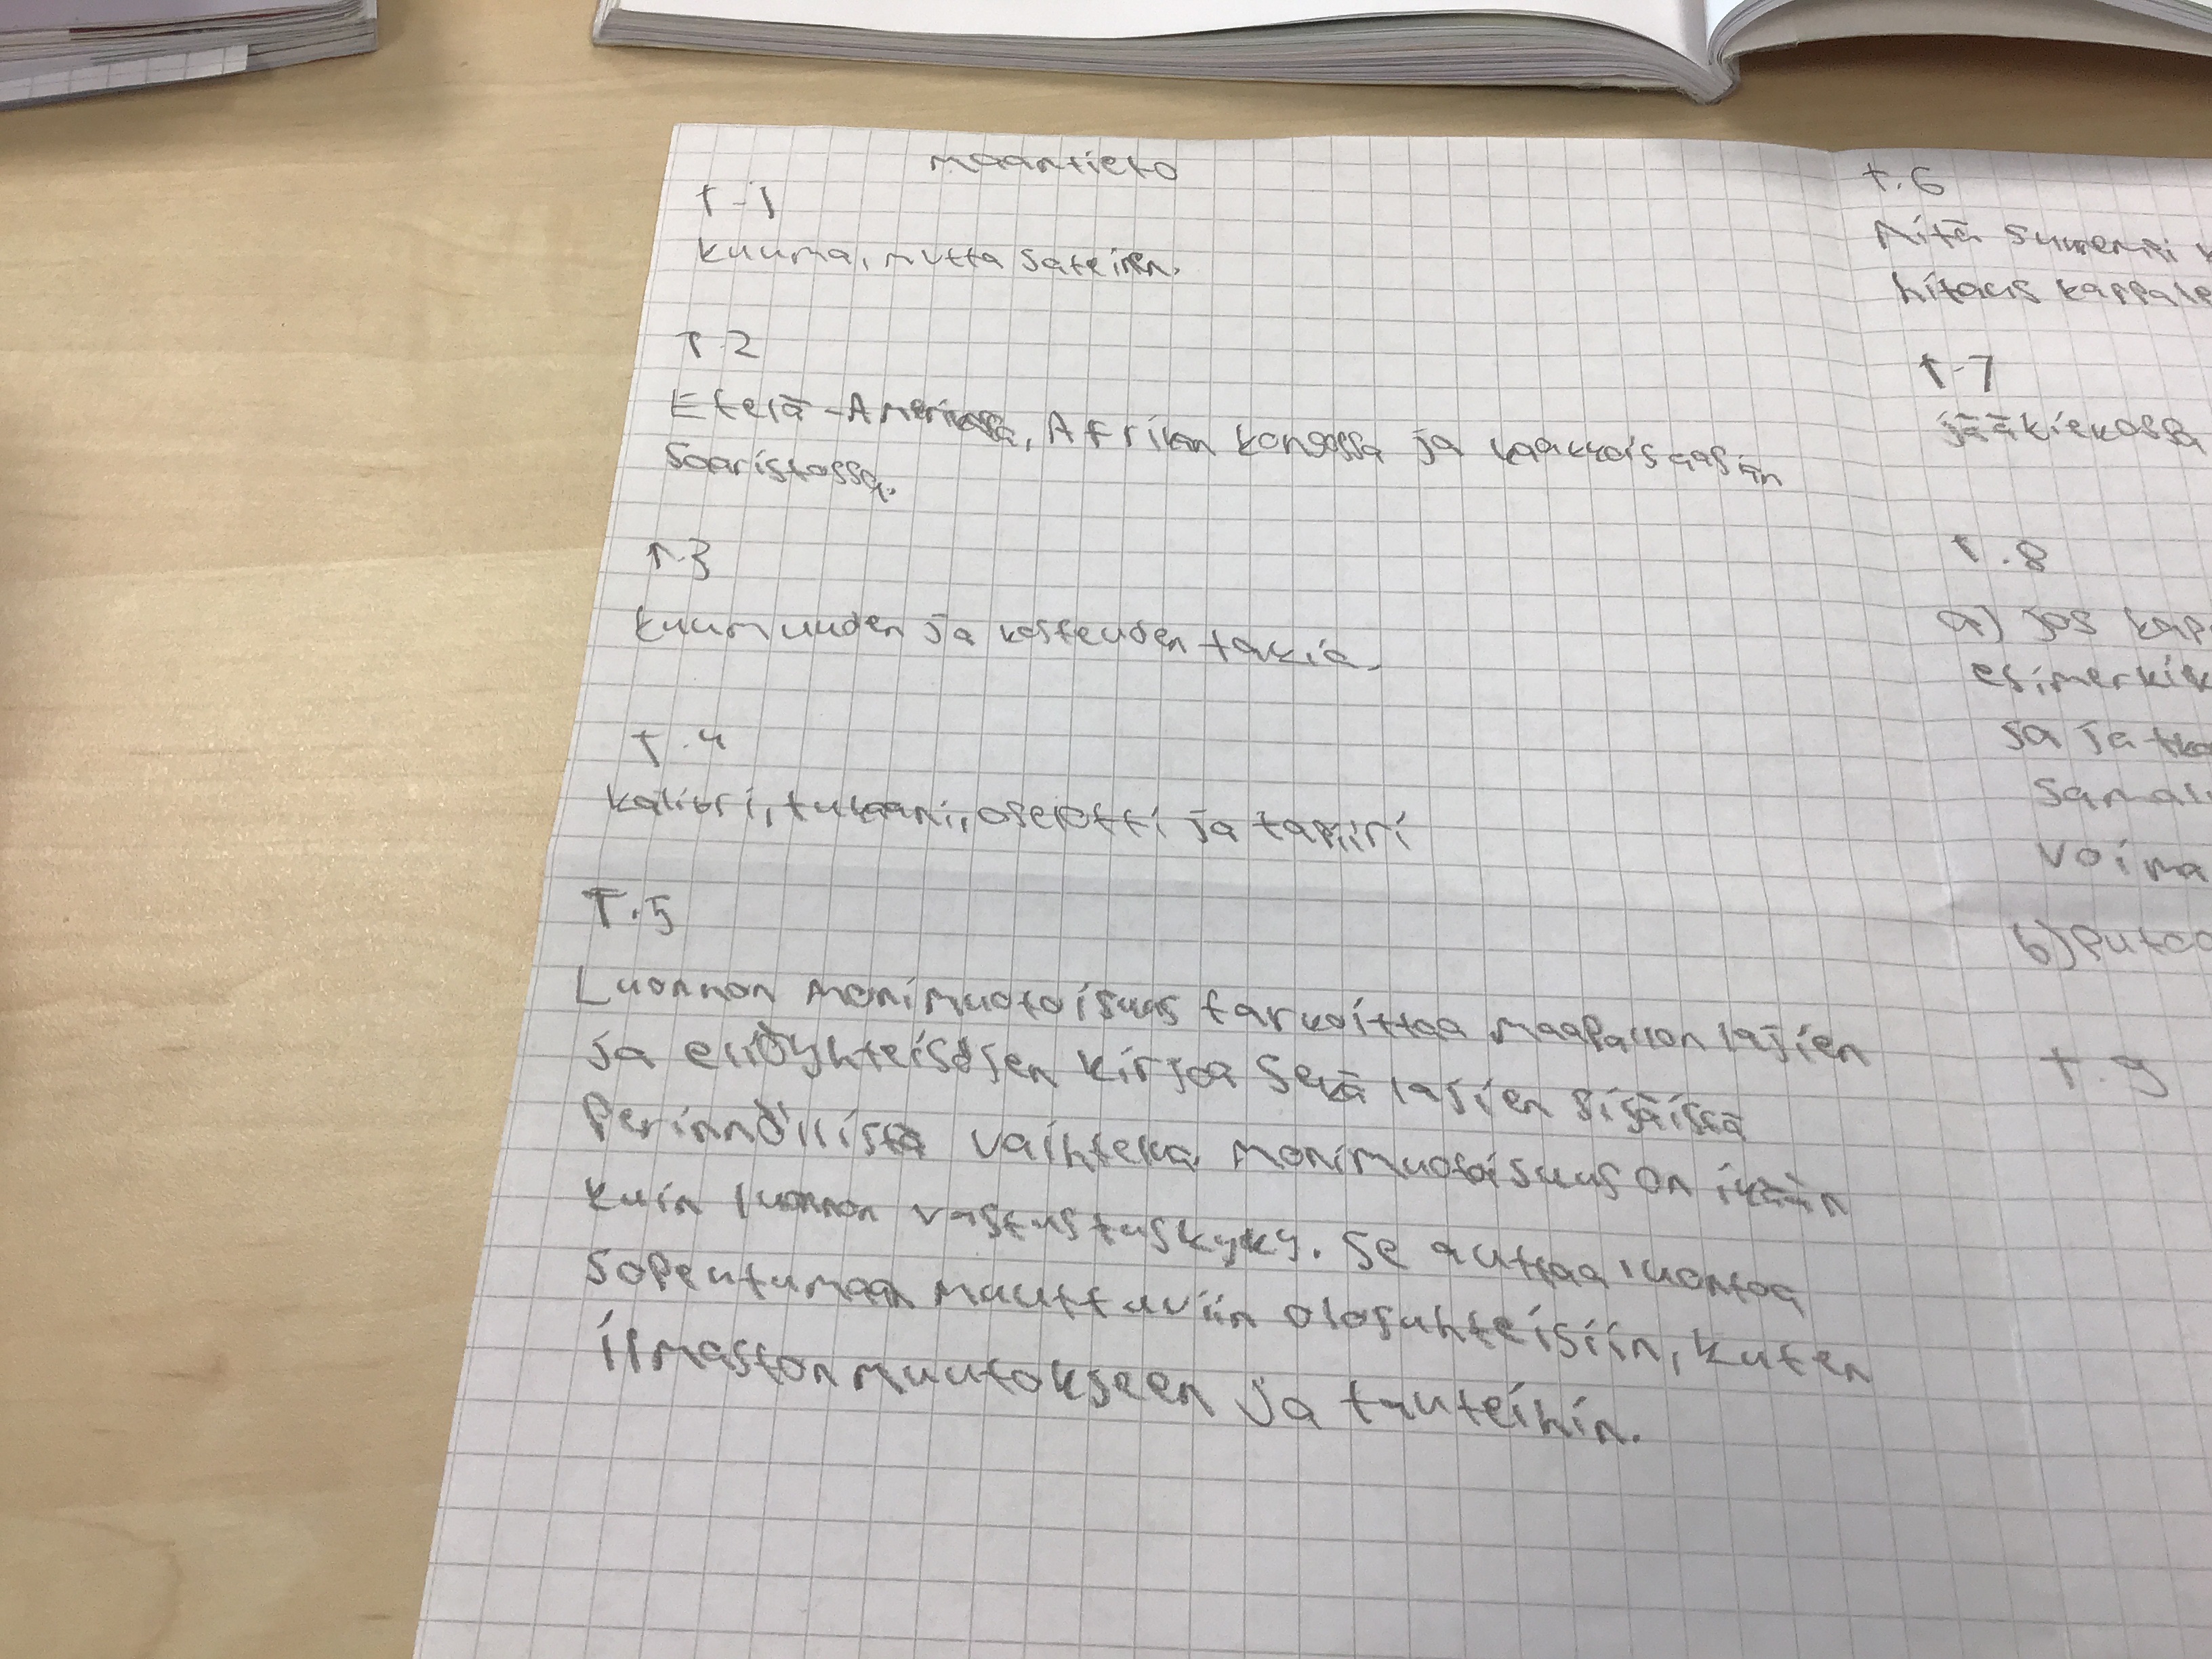 maantieto
t.1
kuuma, mutta sateinen.
T.2
Etelä-Amerikassa, Afrikan kongossa ja kaakkoisaasian
saaristossa.
T.3
kuumuuden ja kosteuden takia.
T.4
kolibri, tukaani, oselotti ja tapiiri
T.5
Luonnon monimuotoisuus tarkoittaa maapallon lajien
ja eliöyhteisöjen kirjoa sekä lajien sisäistä
Perinnöllistä vaihtelua. monimuotoisuus on ikään
kuin luonnon vastustuskyky. se auttaa luontoa
sopeutumaan muuttuviin olosuhteisiin, kuten
ilmastonmuutokseen ja tauteihin.
t.6
Mitä suurempi
hitaus kappale
t.7
jääkiekossa
t.8
a) jos kap
esimerkik
sa jatka
samal
voima
b) Putoa
t.9